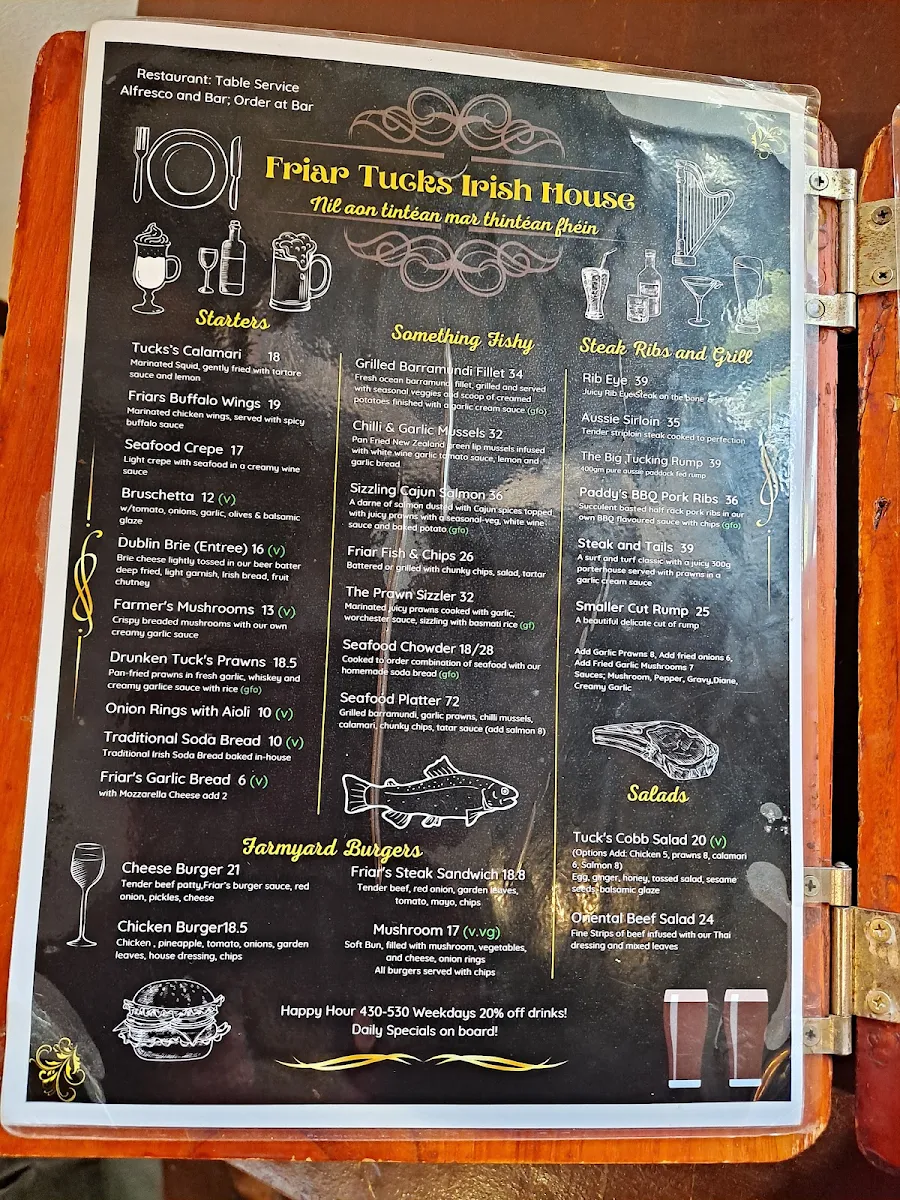 Restaurant: Table Service
Alfresco and Bar; Order at Bar
Friar Tucks Irish House
Níl aon tintéan mar thintéan fhéin
Starters
Tucks's Calamari 18
Marinated Squid, gently fried with tartare
sauce and lemon
Friars Buffalo Wings 19
Marinated chicken wings, served with spicy
buffalo sauce
Seafood Crepe 17
Light crepe with seafood in a creamy wine
sauce
Bruschetta 12 (v)
w/tomato, onions, garlic, olives & balsamic
glaze
Dublin Brie (Entree) 16 (v)
Brie cheese lightly tossed in our beer batter
deep fried, light garnish, Irish bread, fruit
chutney
Farmer's Mushrooms 13 (v)
Crispy breaded mushrooms with our own
creamy garlic sauce
Drunken Tuck's Prawns 18.5
Pan-fried prawns in fresh garlic, whiskey and
creamy garlice sauce with rice (gfo)
Onion Rings with Aioli 10 (v)
Traditional Soda Bread 10 (v)
Traditional Irish Soda Bread baked in-house
Friar's Garlic Bread 6 (v)
with Mozzarella Cheese add 2
Something Fishy
Grilled Barramundi Fillet 34
Fresh ocean barramundi fillet, grilled and served
with seasonal veggies and scoop of creamed
potatoes finished with a garlic cream sauce (gfo)
Chilli & Garlic Mussels 32
Pan Fried New Zealand green lip mussels infused
with white wine garlic tomato sauce, lemon and
garlic bread
Sizzling Cajun Salmon 36
A darne of salmon dusted with Cajun spices topped
with juicy prawns with a seasonal-veg, white wine
sauce and baked potato (gfo)
Friar Fish & Chips 26
Battered or grilled with chunky chips, salad, tartar
The Prawn Sizzler 32
Marinated juicy prawns cooked with garlic,
worchester sauce, sizzling with basmati rice (gf)
Seafood Chowder 18/28
Cooked to order combination of seafood with our
homemade soda bread (gfo)
Seafood Platter 72
Grilled barramundi, garlic prawns, chilli mussels,
calamari, chunky chips, tatar sauce (add salmon 8)
Steak Ribs and Grill
Rib Eye 39
Juicy Rib Eye Steak on the bone
Aussie Sirloin 35
Tender striploin steak cooked to perfection
The Big Tucking Rump 39
400gm pure aussie paddock fed rump
Paddy's BBQ Pork Ribs 36
Succulent basted half rack pork ribs in our
own BBQ flavoured sauce with chips (gfo)
Steak and Tails 39
A surf and turf classic with a juicy 300g
porterhouse served with prawns in a
garlic cream sauce
Smaller Cut Rump 25
A beautiful delicate cut of rump
Add Garlic Prawns 8, Add fried onions 6,
Add Fried Garlic Mushrooms 7
Sauces; Mushroom, Pepper, Gravy,Diane,
Creamy Garlic
Salads
Tuck's Cobb Salad 20 (v)
(Options Add: Chicken 5, prawns 8, calamari
6, Salmon 8)
Egg, ginger, honey, tossed salad, sesame
seeds, balsamic glaze
Oriental Beef Salad 24
Fine Strips of beef infused with our Thai
dressing and mixed leaves
Farmyard Burgers
Cheese Burger 21
Tender beef patty,Friar's burger sauce, red
onion, pickles, cheese
Chicken Burger18.5
Chicken , pineapple, tomato, onions, garden
leaves, house dressing, chips
Friar's Steak Sandwich 18.8
Tender beef, red onion, garden leaves,
tomato, mayo, chips
Mushroom 17 (v.vg)
Soft Bun, filled with mushroom, vegetables,
and cheese, onion rings
All burgers served with chips
Happy Hour 430-530 Weekdays 20% off drinks!
Daily Specials on board!